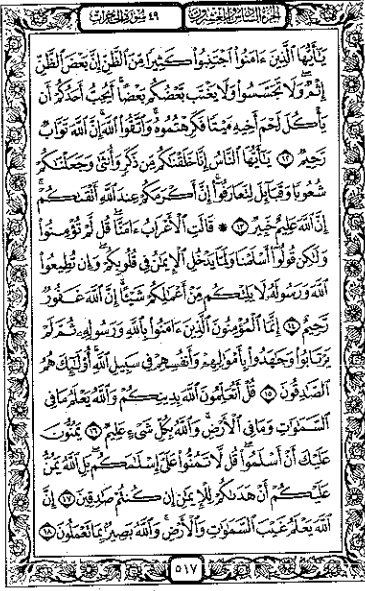 الجزء السادس والعشرون ٤٩ سورة الحجرات
يَٰٓأَيُّهَا ٱلَّذِينَ ءَامَنُوا۟ ٱجْتَنِبُوا۟ كَثِيرًا مِّنَ ٱلظَّنِّ إِنَّ بَعْضَ ٱلظَّنِّ
إِثْمٌ ۖ وَلَا تَجَسَّسُوا۟ وَلَا يَغْتَب بَّعْضُكُم بَعْضًا ۚ أَيُحِبُّ أَحَدُكُمْ أَن
يَأْكُلَ لَحْمَ أَخِيهِ مَيْتًا فَكَرِهْتُمُوهُ ۚ وَٱتَّقُوا۟ ٱللَّهَ ۚ إِنَّ ٱللَّهَ تَوَّابٌ
رَّحِيمٌ ١٢ يَٰٓأَيُّهَا ٱلنَّاسُ إِنَّا خَلَقْنَٰكُم مِّن ذَكَرٍ وَأُنثَىٰ وَجَعَلْنَٰكُمْ
شُعُوبًا وَقَبَآئِلَ لِتَعَارَفُوٓا۟ ۚ إِنَّ أَكْرَمَكُمْ عِندَ ٱللَّهِ أَتْقَىٰكُمْ ۚ
إِنَّ ٱللَّهَ عَلِيمٌ خَبِيرٌ ١٣ * قَالَتِ ٱلْأَعْرَابُ ءَامَنَّا ۖ قُل لَّمْ تُؤْمِنُوا۟
وَلَٰكِن قُولُوٓا۟ أَسْلَمْنَا وَلَمَّا يَدْخُلِ ٱلْإِيمَٰنُ فِى قُلُوبِكُمْ ۖ وَإِن تُطِيعُوا۟
ٱللَّهَ وَرَسُولَهُۥ لَا يَلِتْكُم مِّنْ أَعْمَٰلِكُمْ شَيْـًٔا ۚ إِنَّ ٱللَّهَ غَفُورٌ
رَّحِيمٌ ١٤ إِنَّمَا ٱلْمُؤْمِنُونَ ٱلَّذِينَ ءَامَنُوا۟ بِٱللَّهِ وَرَسُولِهِۦ ثُمَّ لَمْ
يَرْتَابُوا۟ وَجَٰهَدُوا۟ بِأَمْوَٰلِهِمْ وَأَنفُسِهِمْ فِى سَبِيلِ ٱللَّهِ ۚ أُو۟لَٰٓئِكَ هُمُ
ٱلصَّٰدِقُونَ ١٥ قُلْ أَتُعَلِّمُونَ ٱللَّهَ بِدِينِكُمْ وَٱللَّهُ يَعْلَمُ مَا فِى
ٱلسَّمَٰوَٰتِ وَمَا فِى ٱلْأَرْضِ ۚ وَٱللَّهُ بِكُلِّ شَىْءٍ عَلِيمٌ ١٦ يَمُنُّونَ
عَلَيْكَ أَنْ أَسْلَمُوا۟ ۖ قُل لَّا تَمُنُّوا۟ عَلَىَّ إِسْلَٰمَكُم ۖ بَلِ ٱللَّهُ يَمُنُّ
عَلَيْكُمْ أَنْ هَدَىٰكُمْ لِلْإِيمَٰنِ إِن كُنتُمْ صَٰدِقِينَ ١٧ إِنَّ
ٱللَّهَ يَعْلَمُ غَيْبَ ٱلسَّمَٰوَٰتِ وَٱلْأَرْضِ ۚ وَٱللَّهُ بَصِيرٌۢ بِمَا تَعْمَلُونَ ١٨
٥١٧